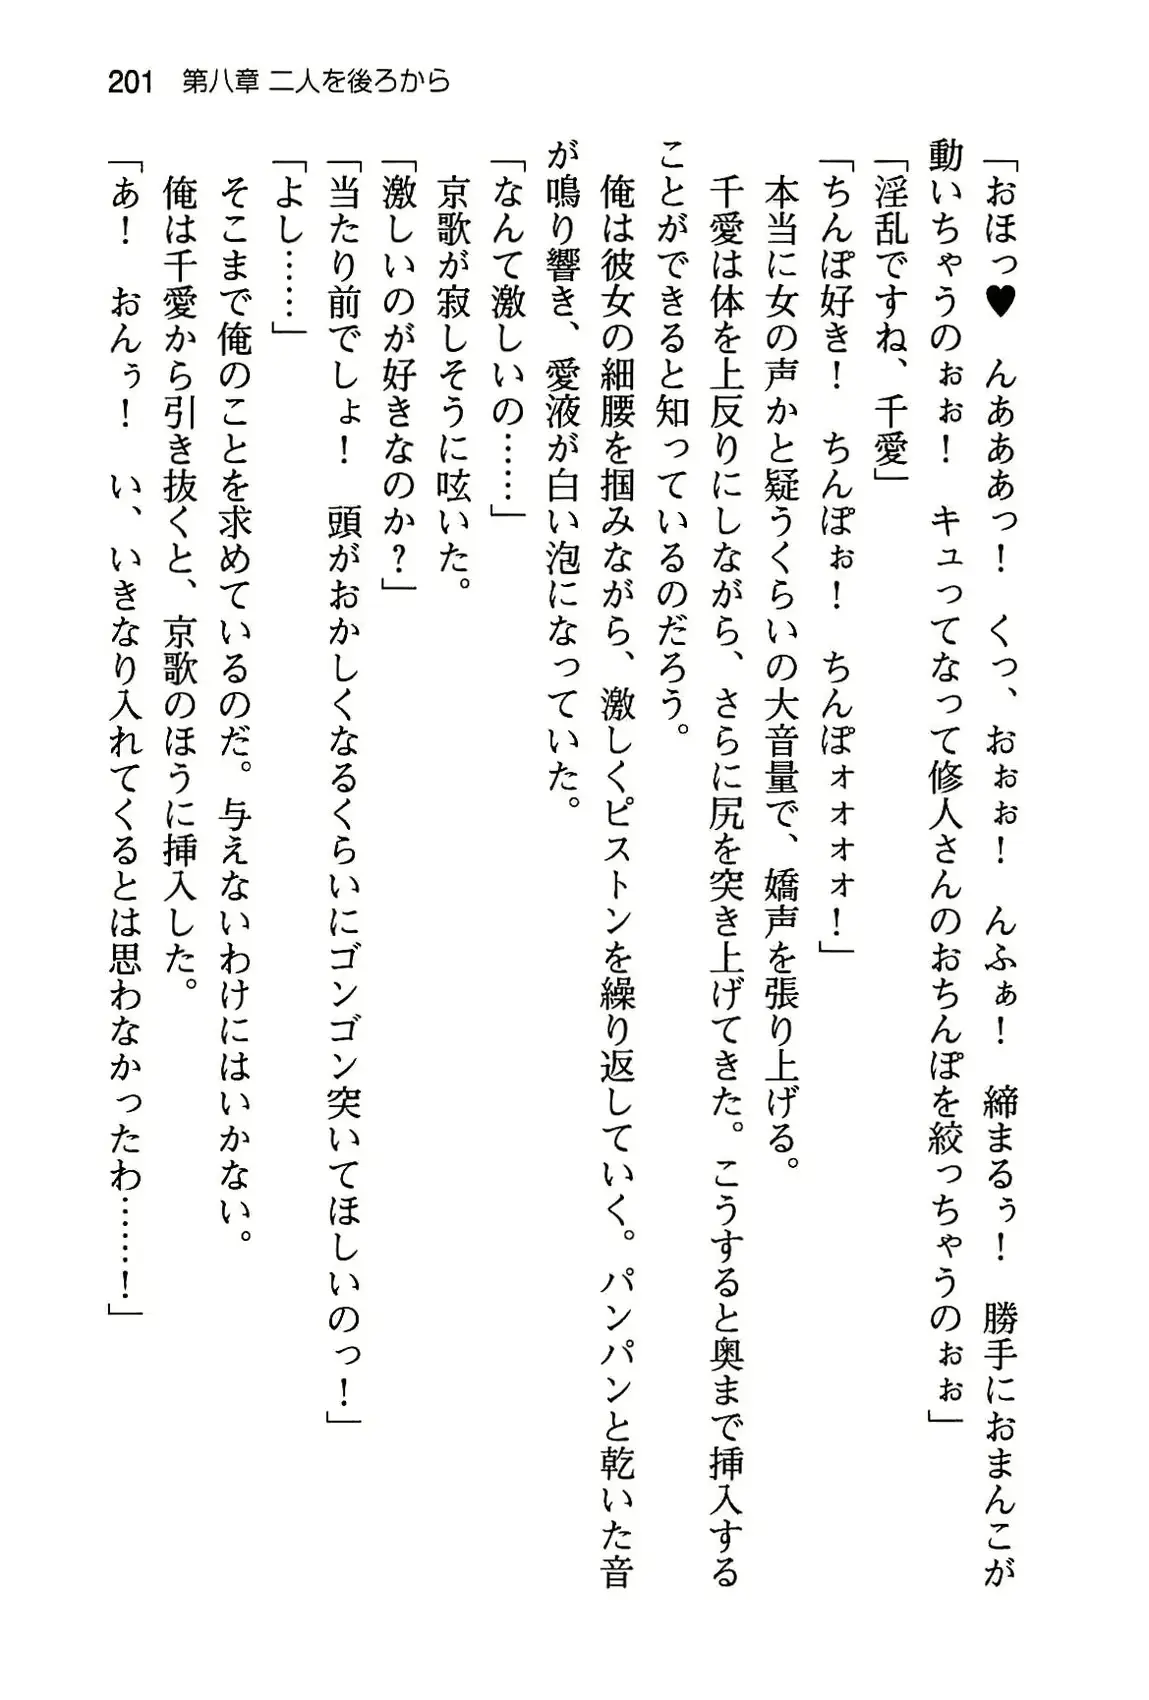 201 第八章 二人を後ろから
「おほっ♥　んあああっ！　くっ、おぉぉ！　んふぁ！　締まるぅ！　勝手におまんこが
動いちゃうのぉぉ！　キュってなって修人さんのおちんぽを絞っちゃうのぉぉ」
「淫乱ですね、千愛」
「ちんぽ好き！　ちんぽぉ！　ちんぽォォォォ！」
　本当に女の声かと疑うくらいの大音量で、嬌声を張り上げる。
　千愛は体を上反りにしながら、さらに尻を突き上げてきた。こうすると奥まで挿入する
ことができると知っているのだろう。
　俺は彼女の細腰を掴みながら、激しくピストンを繰り返していく。パンパンと乾いた音
が鳴り響き、愛液が白い泡になっていた。
「なんて激しいの……」
　京歌が寂しそうに呟いた。
「激しいのが好きなのか？」
「当たり前でしょ！　頭がおかしくなるくらいにゴンゴン突いてほしいのっ！」
「よし……」
　そこまで俺のことを求めているのだ。与えないわけにはいかない。
　俺は千愛から引き抜くと、京歌のほうに挿入した。
「あ！　おんぅ！　い、いきなり入れてくるとは思わなかったわ……！」